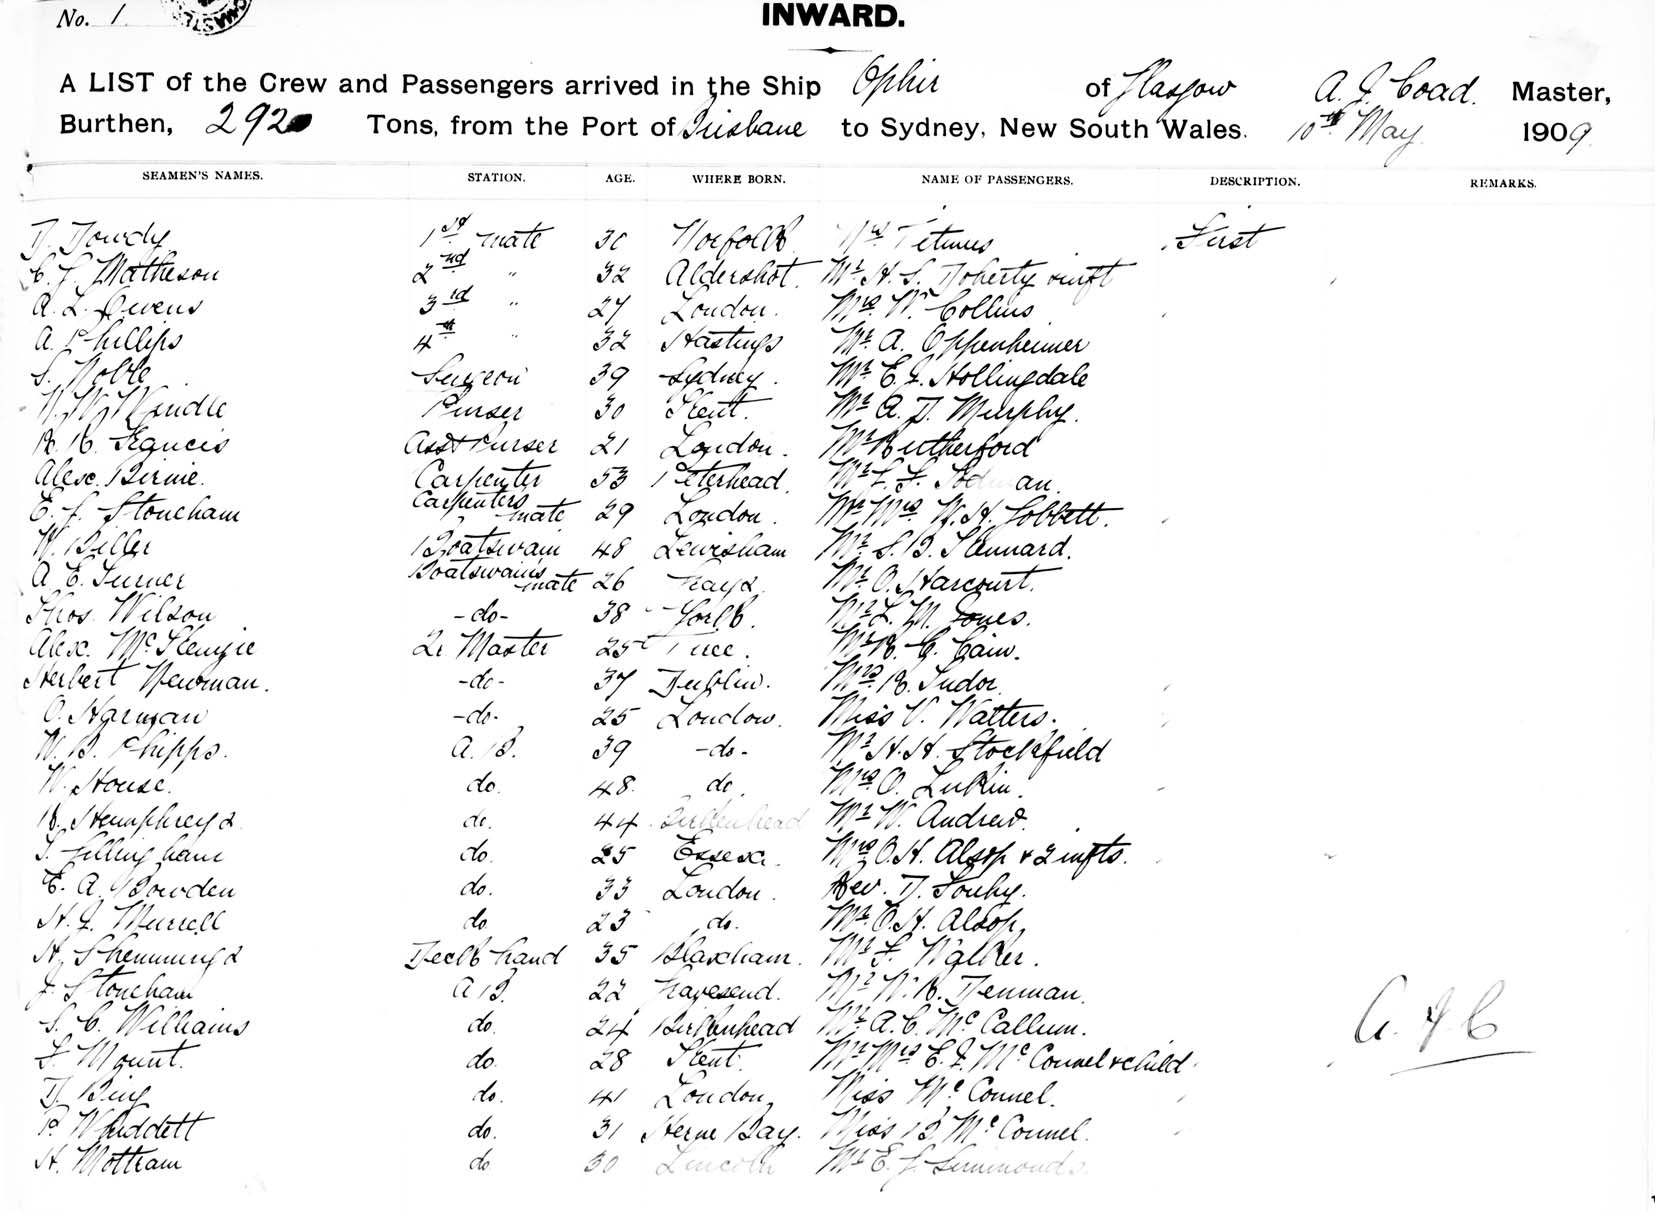 No. 1.
INWARD.
A LIST of the Crew and Passengers arrived in the Ship Ophir of Glasgow A. J. Coad. Master,
Burthen, 292 Tons, from the Port of Brisbane to Sydney, New South Wales. 10th May 1909.
SEAMEN'S NAMES. STATION. AGE. WHERE BORN. NAME OF PASSENGERS. DESCRIPTION. REMARKS.
D. Dowdy 1st mate 30 Norfolk Titmus First
C. J. Matheson 2nd " 32 Aldershot. Mr H. S. Doherty & inft
A. L. Owens 3rd " 27 London. Mrs W. Collins
A. Phillips 4th " 32 Hastings Mr A. Oppenheimer
S. Noble Surgeon 39 Sydney. Mr E. J. Hollingdale
W. W. Windle Purser 30 Kent. Mr A. D. Murphy.
R. R. Francis Asst Purser 21 London. Mr Rutherford
Alex. Birnie. Carpenter 53 Peterhead. Mr
E. J. Stoneham Carpenters mate 29 London. Mr Mrs W. H. Gobbett.
W. Biller Boatswain 48 Lewisham Mr S. B. Kennard.
A. E. Turner Boatswain's mate 26 Grays Mr O. Harcourt.
Thos. Wilson -do- 38 York. Mr L. M. Jones.
Alex. McKenzie Qr Master 25 Mr R. C. Cain.
Herbert Newman. -do- 37 Dublin. Mrs R. Tudor
O. Harman -do- 25 London. Miss V. Watters.
W. B. Phipps. A. B. 39 -do- Mr H. H. Stockfield
W. House. do. 48 do. Mrs O. Lukin.
R. Humphreys do. 44 Birkenhead Mr W. Andrew.
T. Gillingham do. 25 Essex. Mrs O. H. Alsop & 2 infts.
E. A. Bowden do. 33 London. Rev. D.
H. J. Murrell do 23 do. Mr O. H. Alsop
H. Shemmings Deck hand 35 Mr F. Walker.
J. Stoneham A B. 22 Gravesend. Mr W. R. Denman.
S. C. Williams do. 24 Birkenhead Mr A. C. McCallum.
F. Mount. do. 28 Kent. Mr Mrs E. J. McConnel & child
D. Bing do. 41 London, Miss McConnel.
P. Whiddett do. 31 Herne Bay. Miss B. McConnel.
H. Mottram do 30 Lincoln Mr E. J. Simmonds.
A. J. C